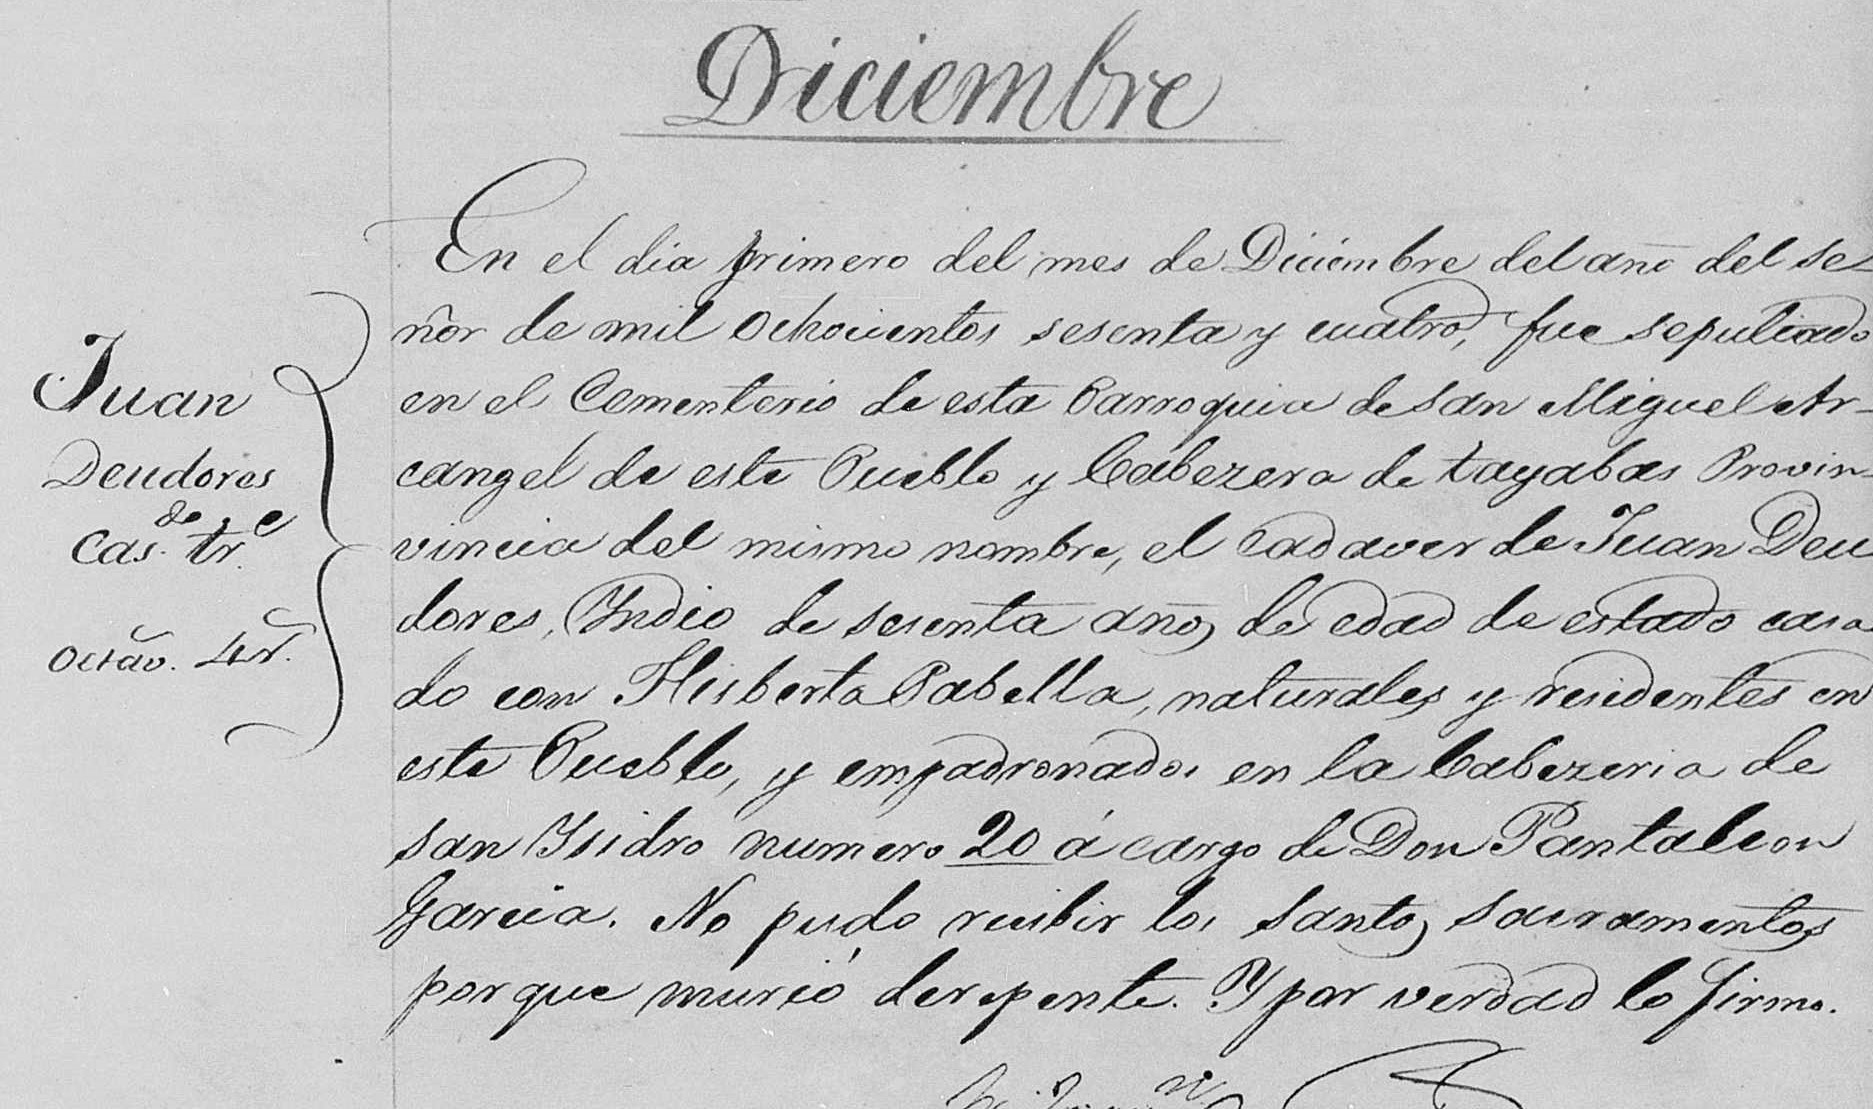 Diciembre
En el dia primero del mes de Diciembre del año del se-
ñor de mil ochocientos sesenta y cuatro, fue sepultado
en el Cementerio de esta Parroquia de San Miguel Ar-
cangel de este Pueblo y Cabezera de tayabas Provin-
vincia del mismo nombre, el cadaver de Juan Deu
dores, Yndio de sesenta años de edad de estado casa
do con Hisberta Pabella, naturales y residentes en
este Pueblo, y empadronados en la Cabezeria de
san Ysidro numero 20 á cargo de Don Pantaleon
Garcia. No pudo recibir los santos sacramentos
porque murió derepente. Y por verdad lo firmo.
Juan
Deudores
Cas.do tr.e
Octav. 4r.